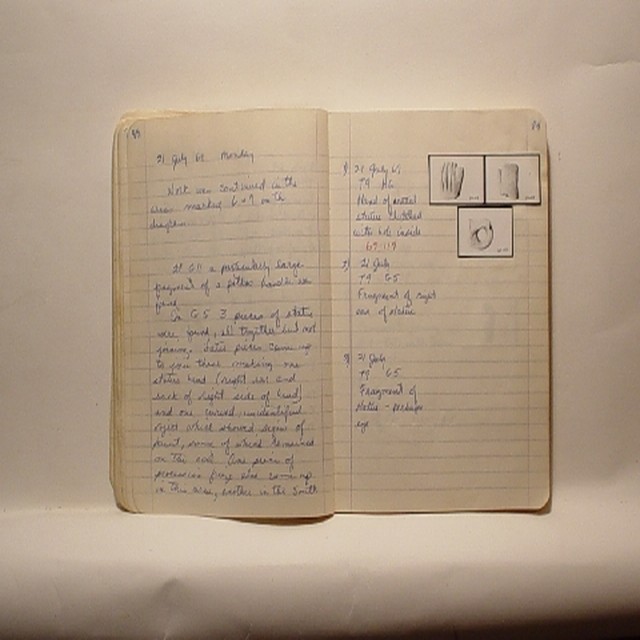 21 July 69 Monday
Work was continued in the
area marked 6 + 9 on the
diagram
a particularly large
fragment of a pithos handle was
found
In G5 3 pieces of statue
were found, all together but not
joining. Later pieces came up
to join these making one
statue head (right ear and
back of right side of head)
and one curved, unidentified
object which showed signs of
paint, some of which remained
on the end. One piece of
also came up
in this area, another in the South
21 July 69
T9
Hand of
statue clutched
with hole inside
69-119
7) 21 July
T9 G5
Fragment of right
ear of statue
8) 21 July
T9 G5
Fragment of
statue - perhaps
eye